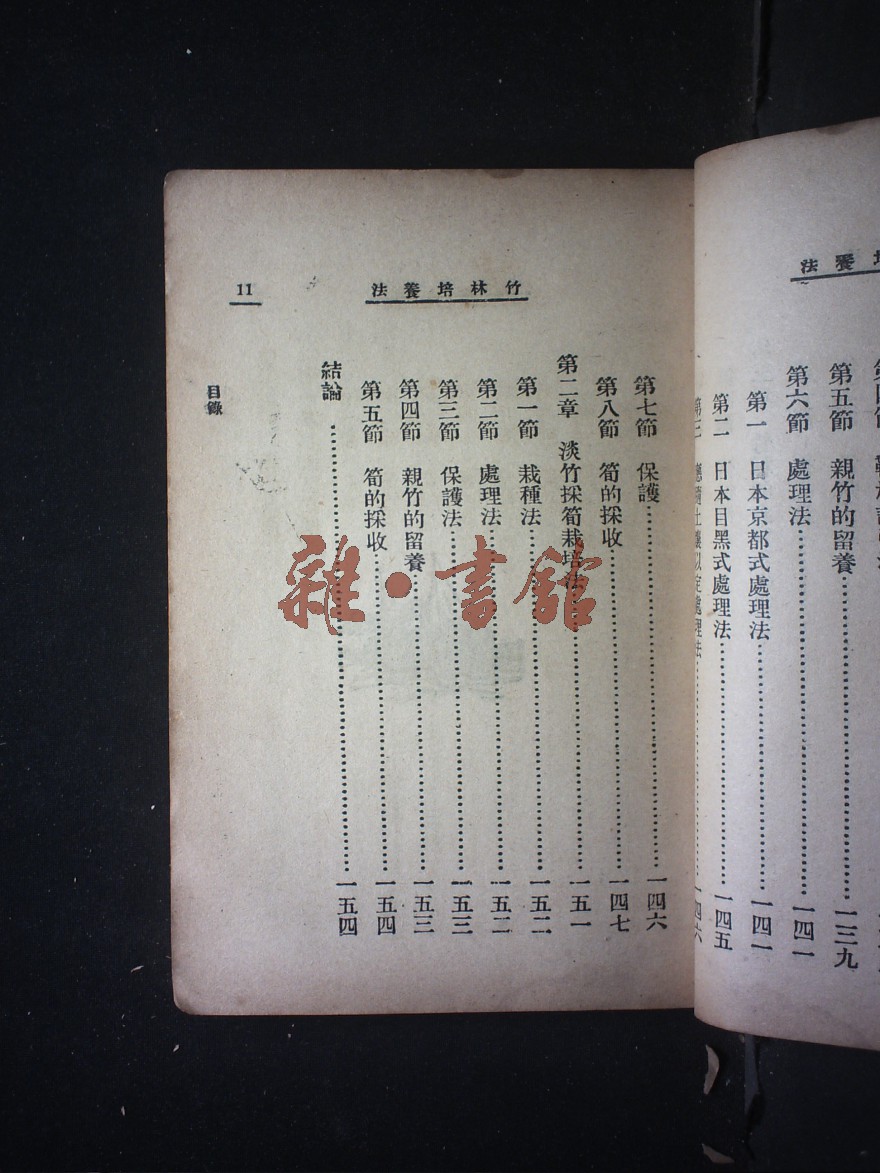 養法
第五節　親竹的留養……一三九
第六節　處理法……一四一
第一　日本京都式處理法……一四一
第二　日本目黑式處理法……一四五
竹林培養法
11
第七節　保護……一四六
第八節　筍的採收……一四七
第二章　淡竹採筍栽培法……一五一
第一節　栽種法……一五二
第二節　處理法……一五二
第三節　保護法……一五三
第四節　親竹的留養……一五三
第五節　筍的採收……一五四
結論……一五四
目錄
雜·書館